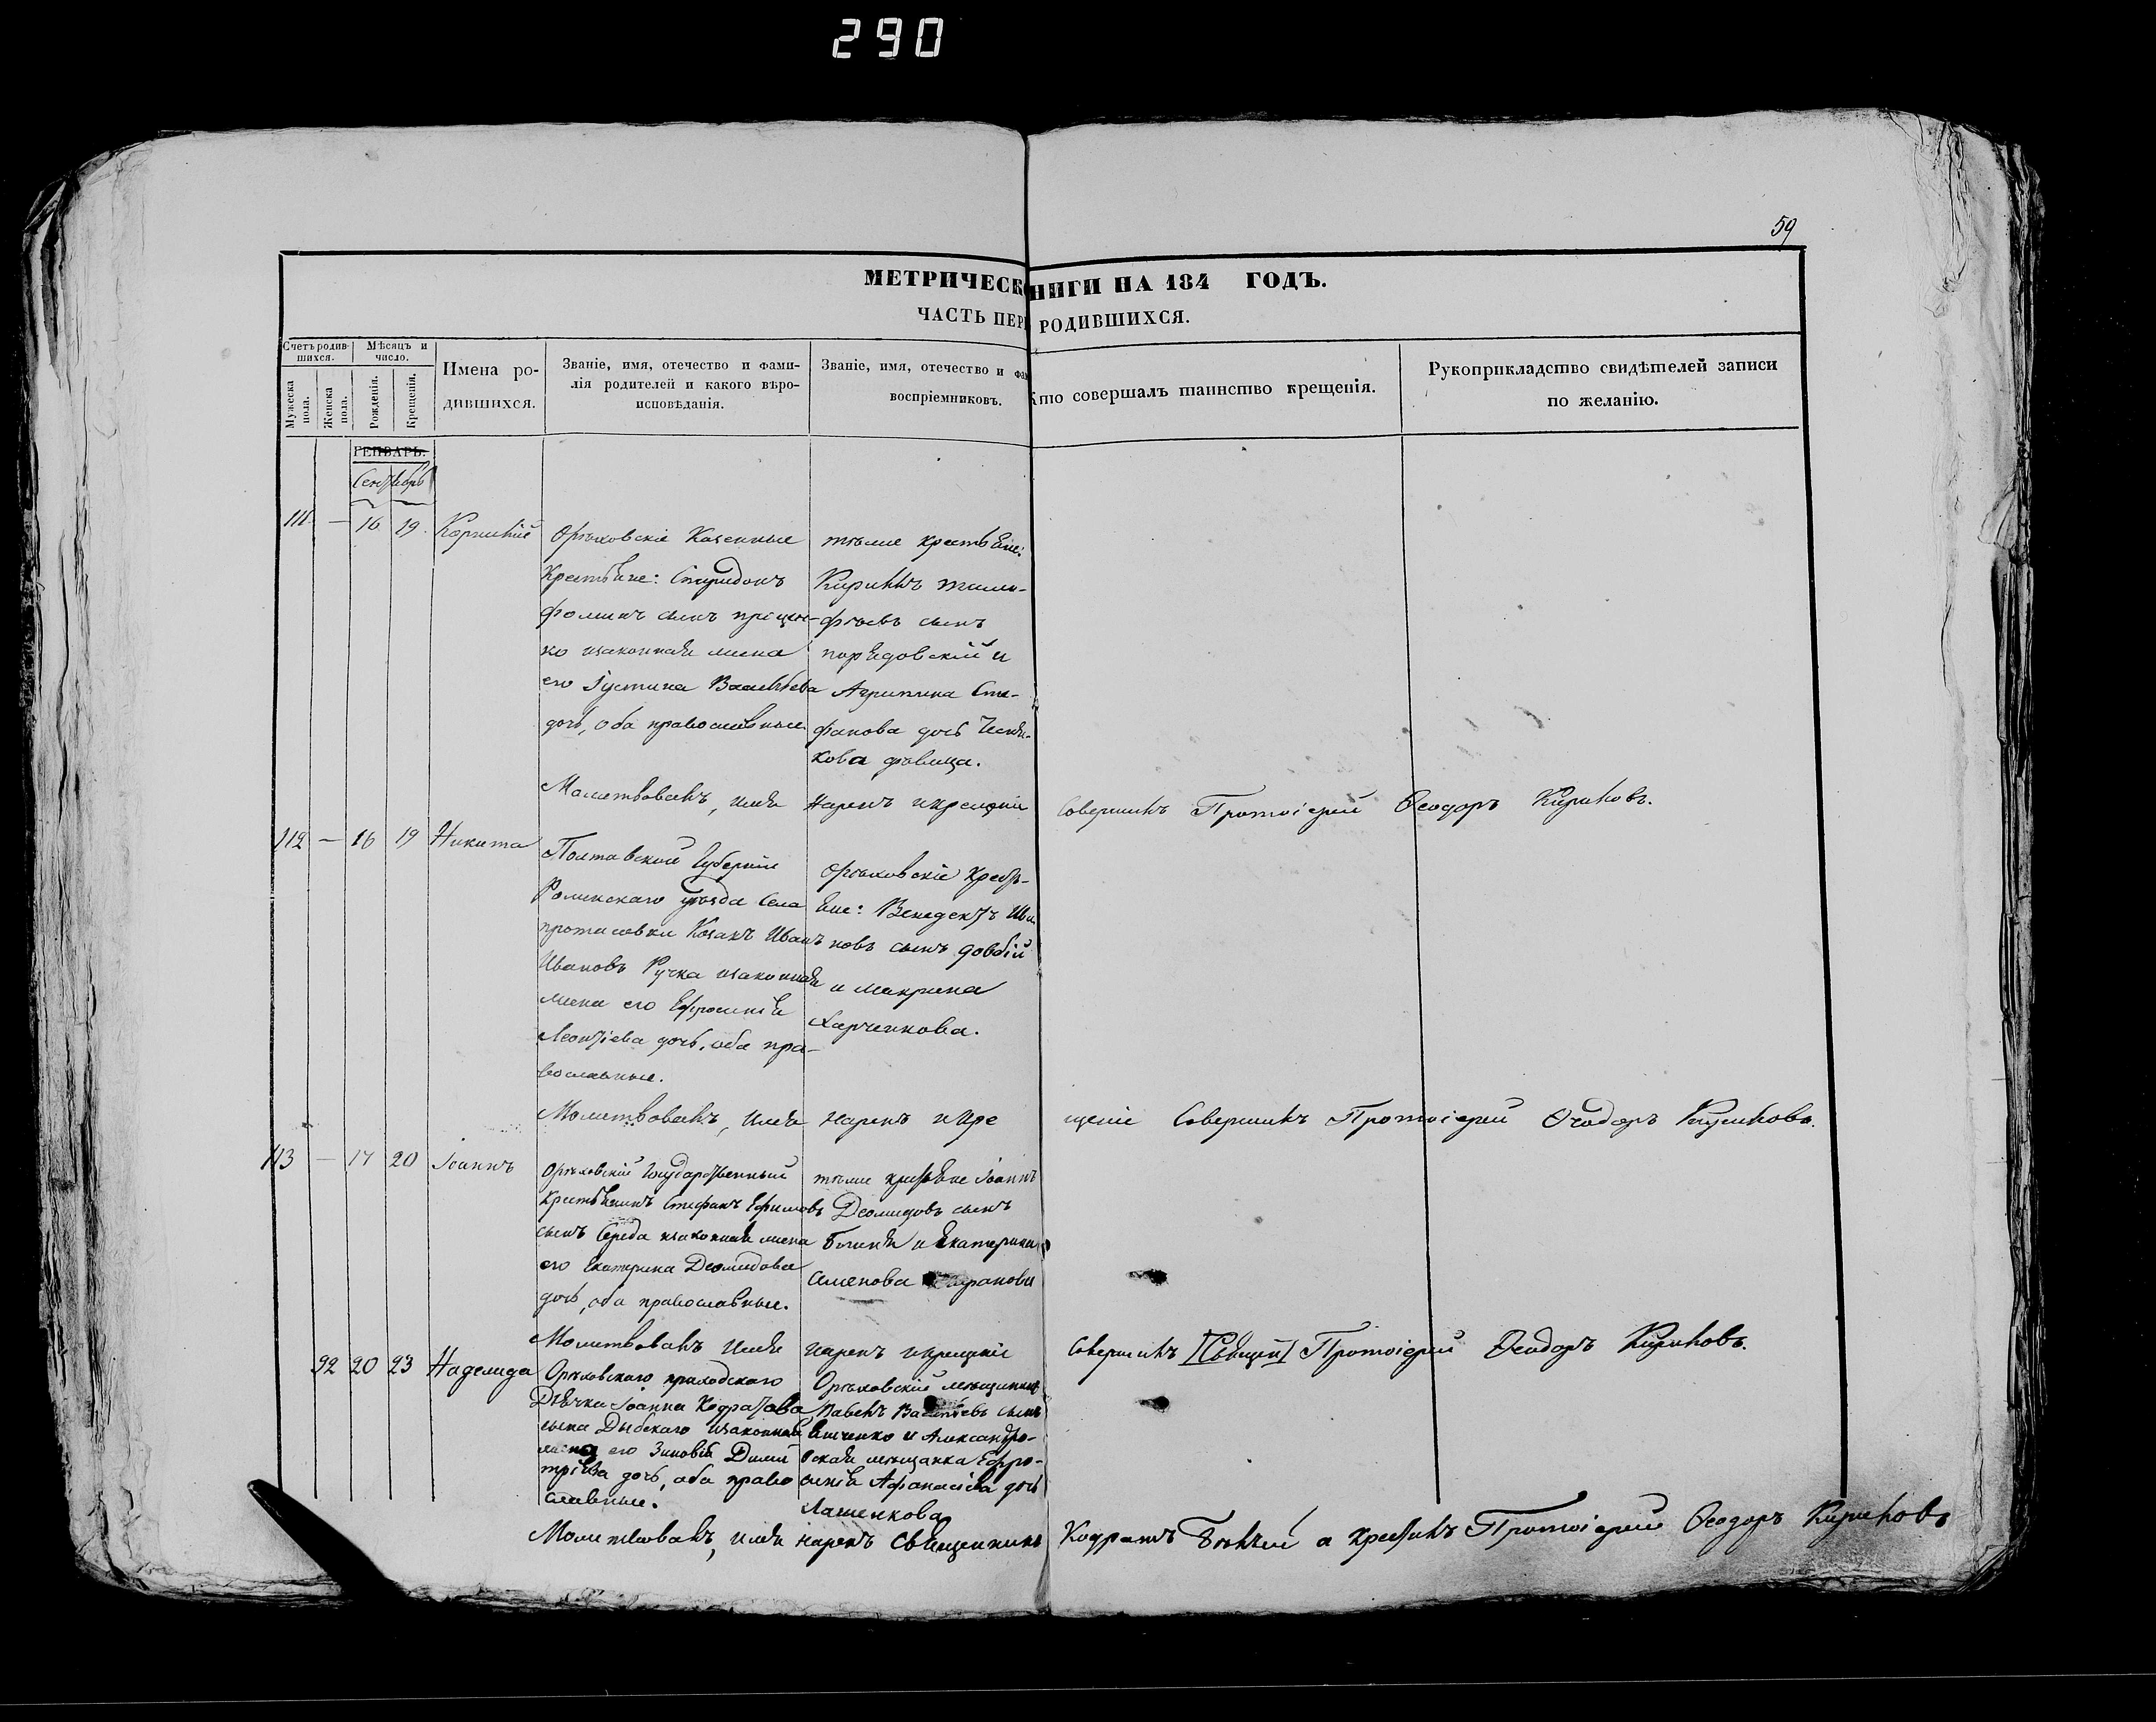 290
59
МЕТРИЧЕСК НИГИ НА 184 ГОДЪ.
ЧАСТЬ ПЕР РОДИВШИХСЯ.
Счетъ родив-
шихся.
Мѣсяцъ и
число.
Мужеска
пола.
Женска
пола.
Рожденія.
Крещенія.
Имена ро-
дившихся.
Званіе, имя, отечество и фами-
лія родителей и какого вѣро-
исповѣданія.
Званіе, имя, отечество и фа
воспріемниковъ.
Кто совершалъ таинство крещенія.
Рукоприкладство свидѣтелей записи
по желанію.
ГЕНВАРЬ.
Сентябрь
111 — 16 19 Корнилій
Орѣховскіе Казенные
Крестьяне: Спиридонъ
Фоминъ сынъ
ко изаконная жена
его Іустина Васильева
дочь, оба православные.
тѣже крестьяне:
Кириллъ Тимо-
фѣевъ сынъ
и
Агрипина Сте-
фанова дочь
кова дѣвица.
Молитвовалъ, имя нарекъ и крещеніе совершилъ Протоіерей Ѳеодоръ Кириковъ.
112 — 16 19 Никита
Полтавской Губерніи
Роменскаго уѣзда Села
Протасовки Козакъ Иванъ
Ивановъ Ручка изаконная
жена его Ефросинія
Леонтіева дочь, оба пра-
вославные.
Орѣховскіе крестья-
яне: Венедектъ Ива
новъ сынъ Довбій
и Макрина
Харченкова.
Молитвовалъ, имя нарекъ и кре щеніе Совершилъ Протоіерей Ѳеодоръ Кириковъ.
113 — 17 20 Іоаннъ
Орѣховскій Государственный
Крестьянинъ Стефанъ Ефимовъ
сынъ Середа изаконная жена
его Екатерина Деомидова
дочь, оба православные.
тѣже крестьяне Іоаннъ
Деомидовъ сынъ
и Екатерина
Семенова
Молитвовалъ имя нарекъ и крещеніе совершилъ Протоіерей Ѳеодоръ Кириковъ.
92 20 23 Надежда
Орѣховскаго приходскаго
Дьячка Іоанна Кодратова
сына Дыбскаго изаконной
жены его Зиновіи Дими
тріева дочь, оба право
славные.
Орѣховскій мѣщанинъ
Павелъ Васильевъ сынъ
и Александро-
вская мѣщанка Ефро-
синія Афанасіева дочь
Лашенкова
Молитвовалъ, имя нарекъ Священникъ Кодратъ а крестилъ Протоіерей Ѳеодоръ Кириковъ